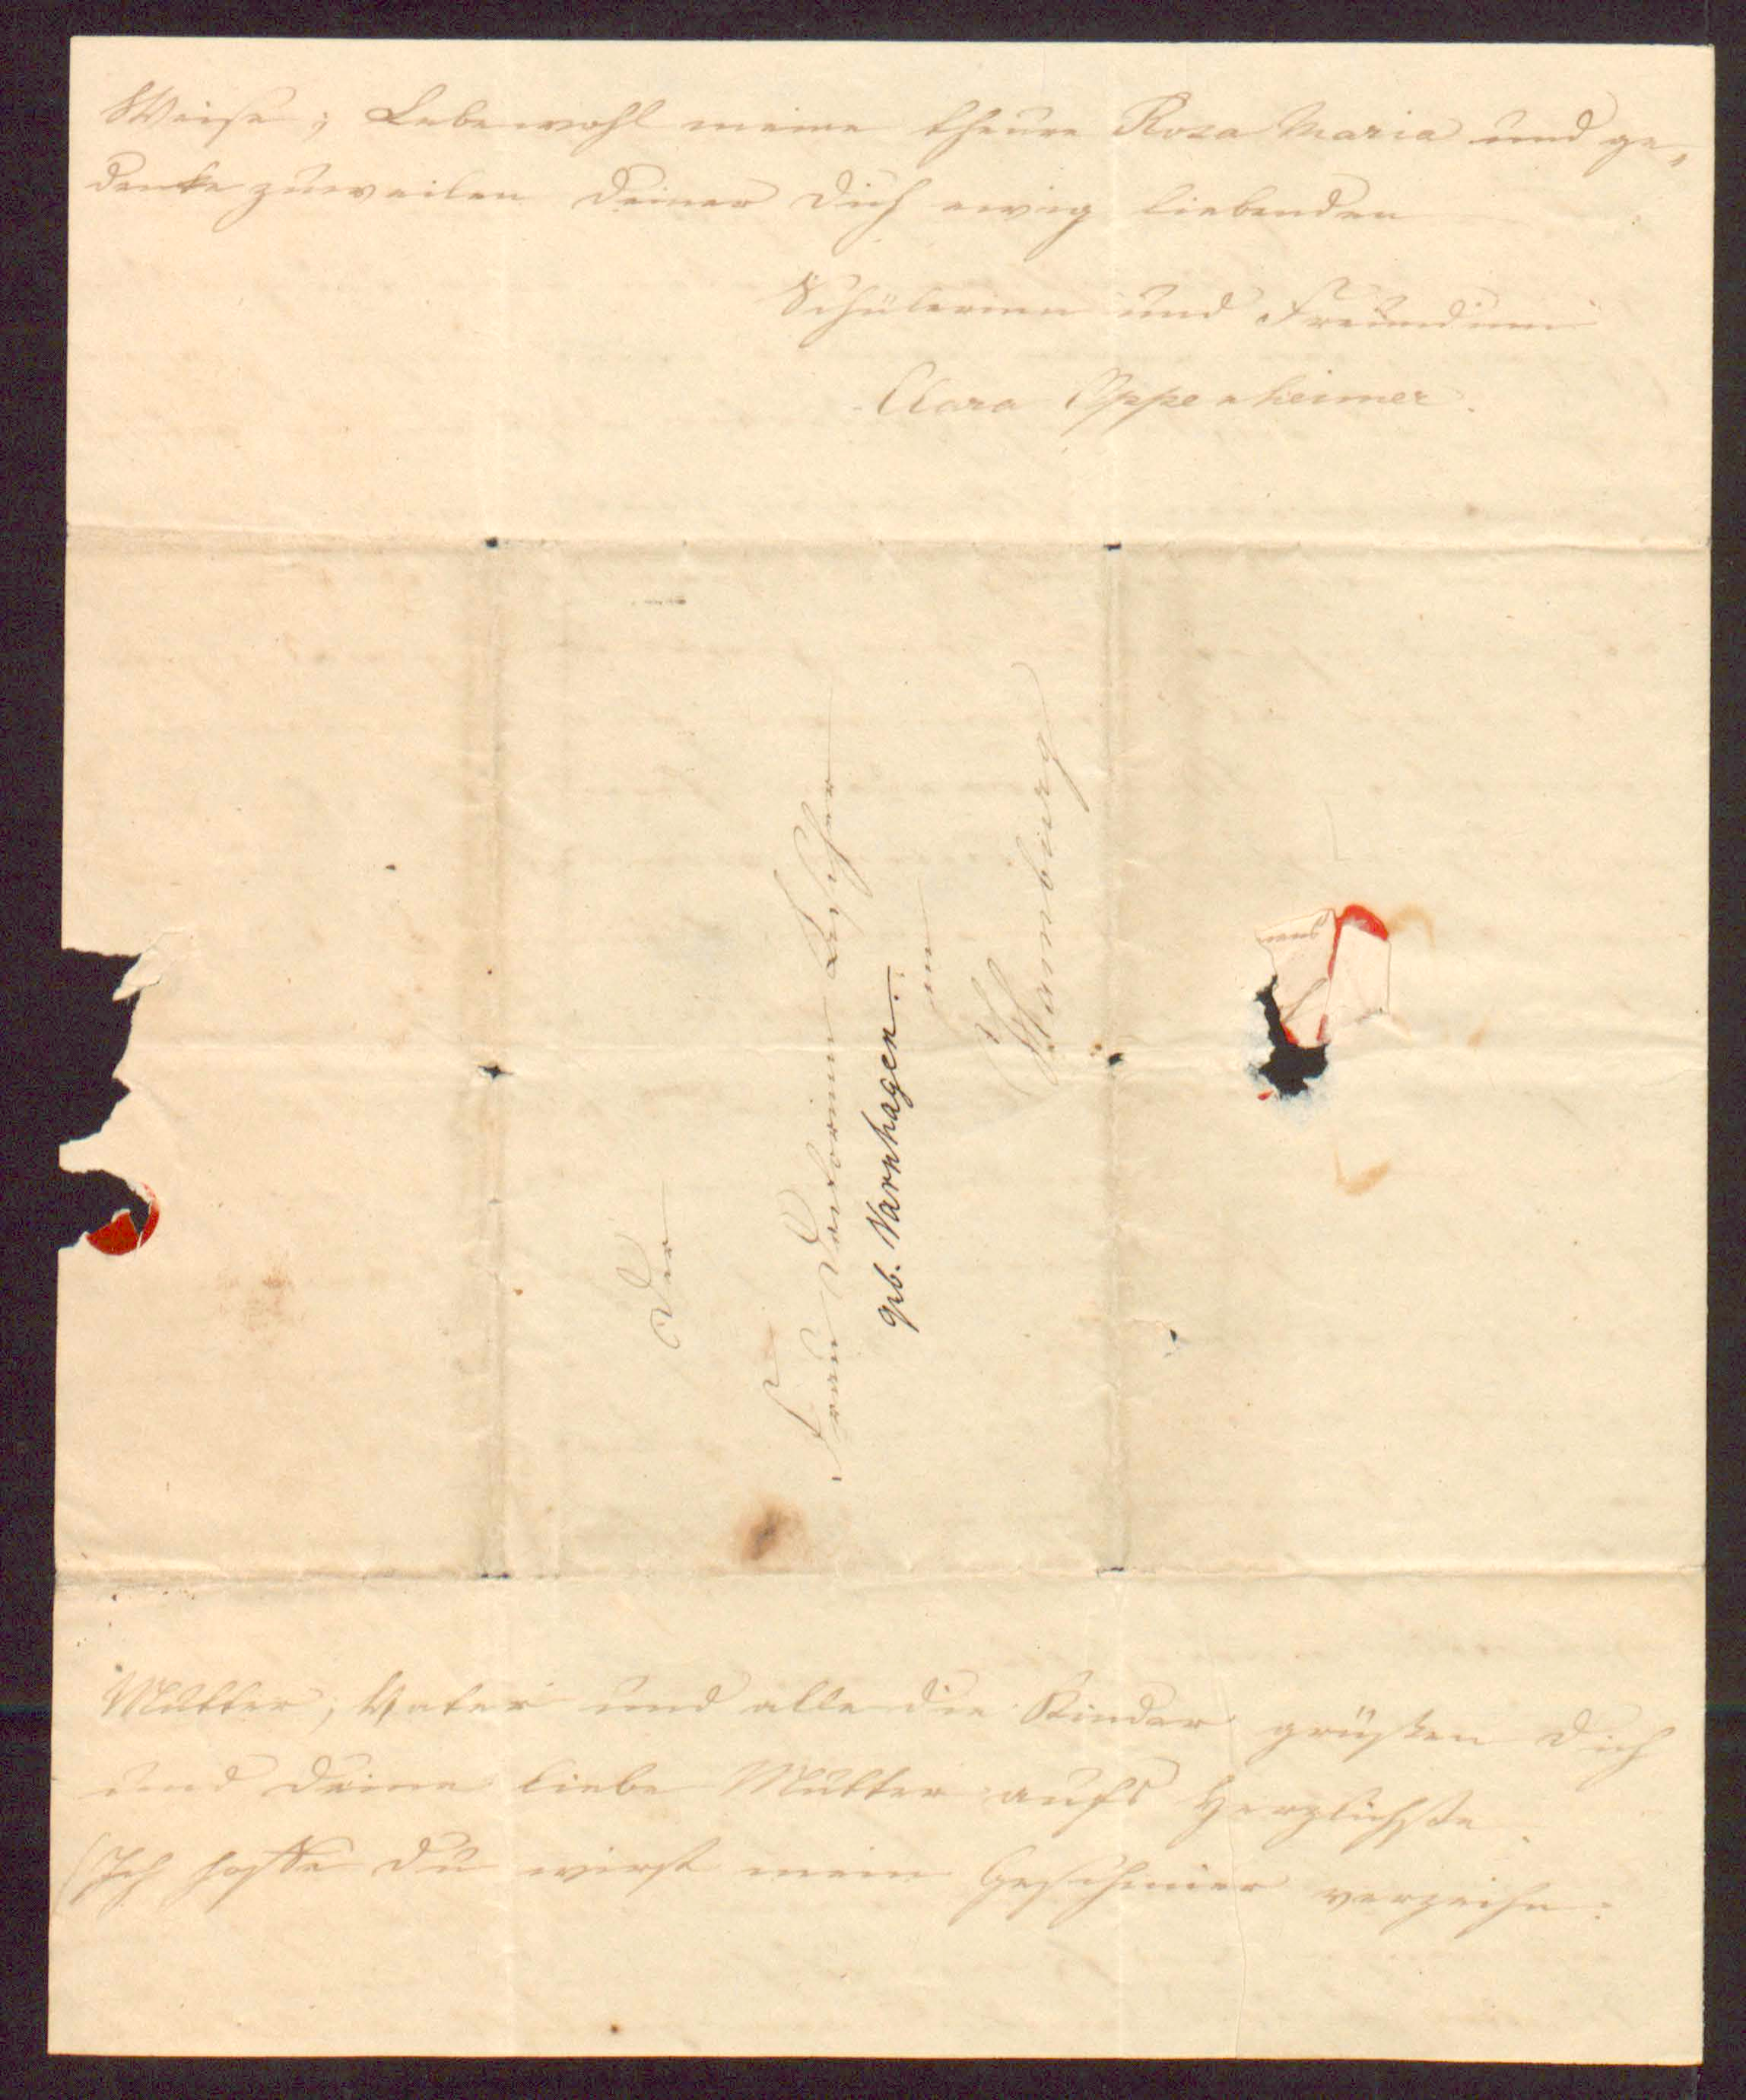 Weise; Lebewohl meine theure Rosa Maria und ge„
denke zuweilen Deiner Dich ewig liebenden
Schülerinn und Freundinn
Clara Oppenheimer.
Der
Frau Doctorinn Assing
geb. Varnhagen.
in
Hamburg
Mutter, Vater und alle die Kinder grüßen Dich
und Deine liebe Mutter aufs Herzlichste.
(Ich hoffe Du wirst mein Geschmier verzeihn.